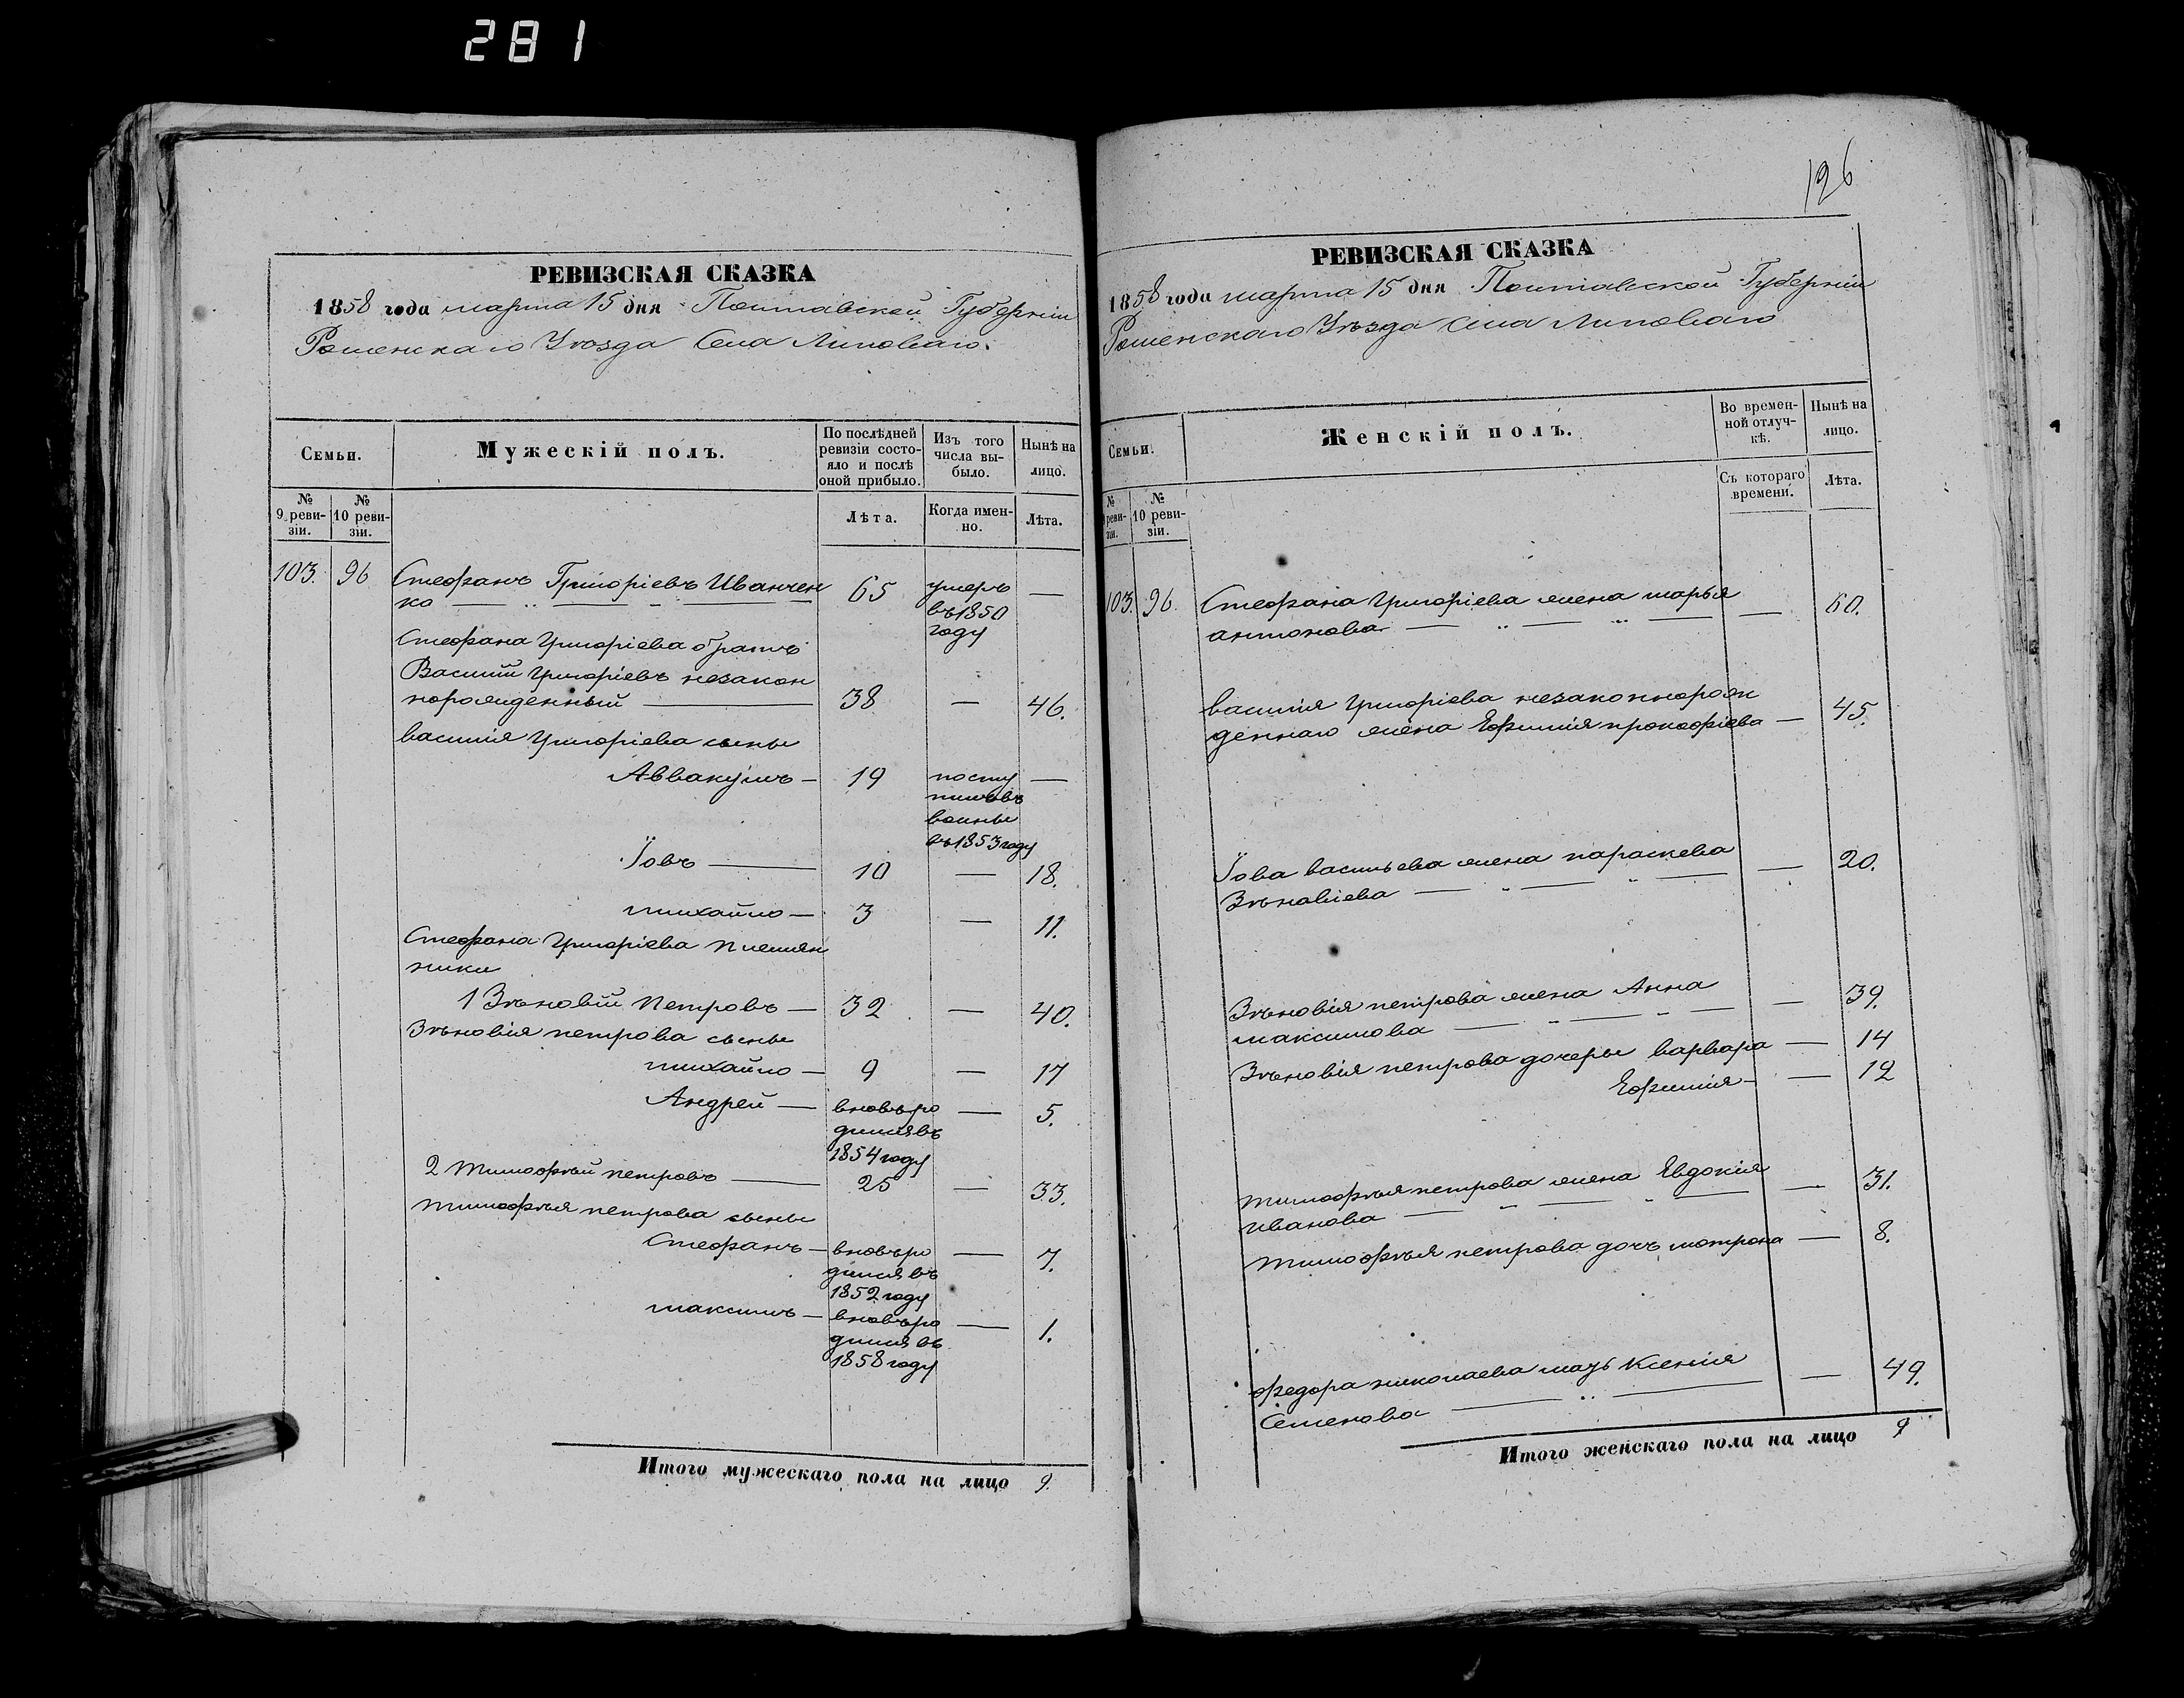 281
РЕВИЗСКАЯ СКАЗКА
1858 года марта 15 дня Полтавской Губернiи
Роменскаго Уѣзда Села Липоваго.
Семьи.
Мужескiй полъ.
По послѣдней ревизiи состояло и послѣ оной прибыло.
Изъ того числа выбыло.
Нынѣ на лицо.
№ 9 ревизiи.
№ 10 ревизiи.
Лѣта.
Когда именно.
Лѣта.
103. 96 Стефанъ Григорiевъ Иванчен 65 умеръ —
ко въ 1850
году
Стефана Григорiева братъ
Василiй Григорiевъ незакон
норожденный — 38 — 46.
василiя Григорiева сыны
Аввакумъ — 19 посту —
пилъ въ
воины
въ 1853 году
Iовъ — 10 — 18.
михайло — 3 — 11.
Стефана Григорiева племян
ники
1 Зѣновiй Петровъ — 32 — 40.
Зѣновiя петрова сыны
михайло — 9 — 17
Андрей — вновь ро — 5.
дился въ
1854 году
2 тимофѣй петровъ — 25 — 33.
тимофѣя петрова сыны
Стефанъ — вновь ро — 7.
дился въ
1852 году
максимъ — вновь ро — 1.
дился въ
1858 году
Итого мужескаго пола на лицо 9.
126
РЕВИЗСКАЯ СКАЗКА
1858 года марта 15 дня Полтавской Губернiи
Роменскаго Уѣзда Села Липоваго
Семьи.
Женскiй полъ.
Во временной отлучкѣ.
Нынѣ на лицо.
№ 9 ревизiи.
№ 10 ревизiи.
Съ котораго времени.
Лѣта.
103. 96. Стефана Григорiева жена марья — 60.
антонова —
василiя Григорiева незаконнорож
деннаго жена Ефимiя прокофiева — 45.
Iова васильева жена параскева — 20.
Зѣновiева —
Зѣновiя петрова жена Анна — 39.
максимова —
Зѣновiя петрова дочеры варвара — 14
Ефимiя — 12
тимофѣя петрова жена Евдокiя — 31.
иванова —
тимофѣя петрова дочь мотрона — 8.
федора николаева мать Ксенiя — 49.
Семенова —
Итого женскаго пола на лицо 9